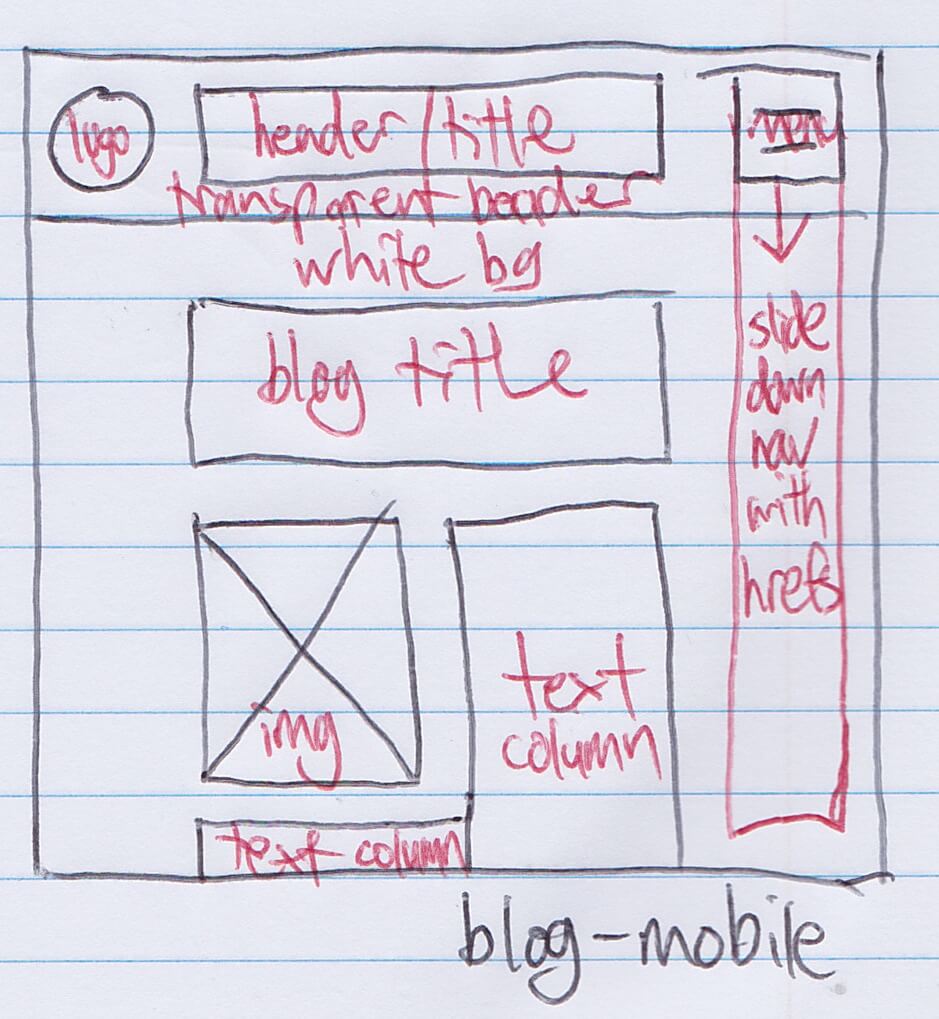 logo
header/title
menu
transparent header
white bg
blog title
slide
down
nav
with
hrefs
img
text
column
text column
blog-mobile